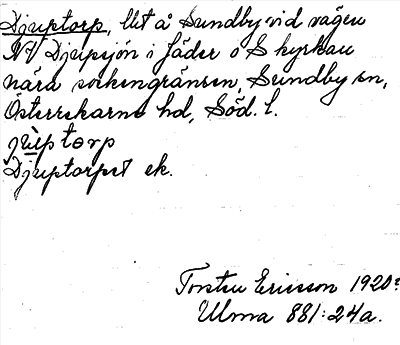 Djuptorp, llt å Sundby vid vägen
NV Djupsjön i Jäder o S kyrkan
nära sockengränsen, Sundby sn,
Österrekarne hd, Söd. l.
jùptorp
Djuptorpet ek.
Torsten Ericsson 1920?
Ulma 881:24a.